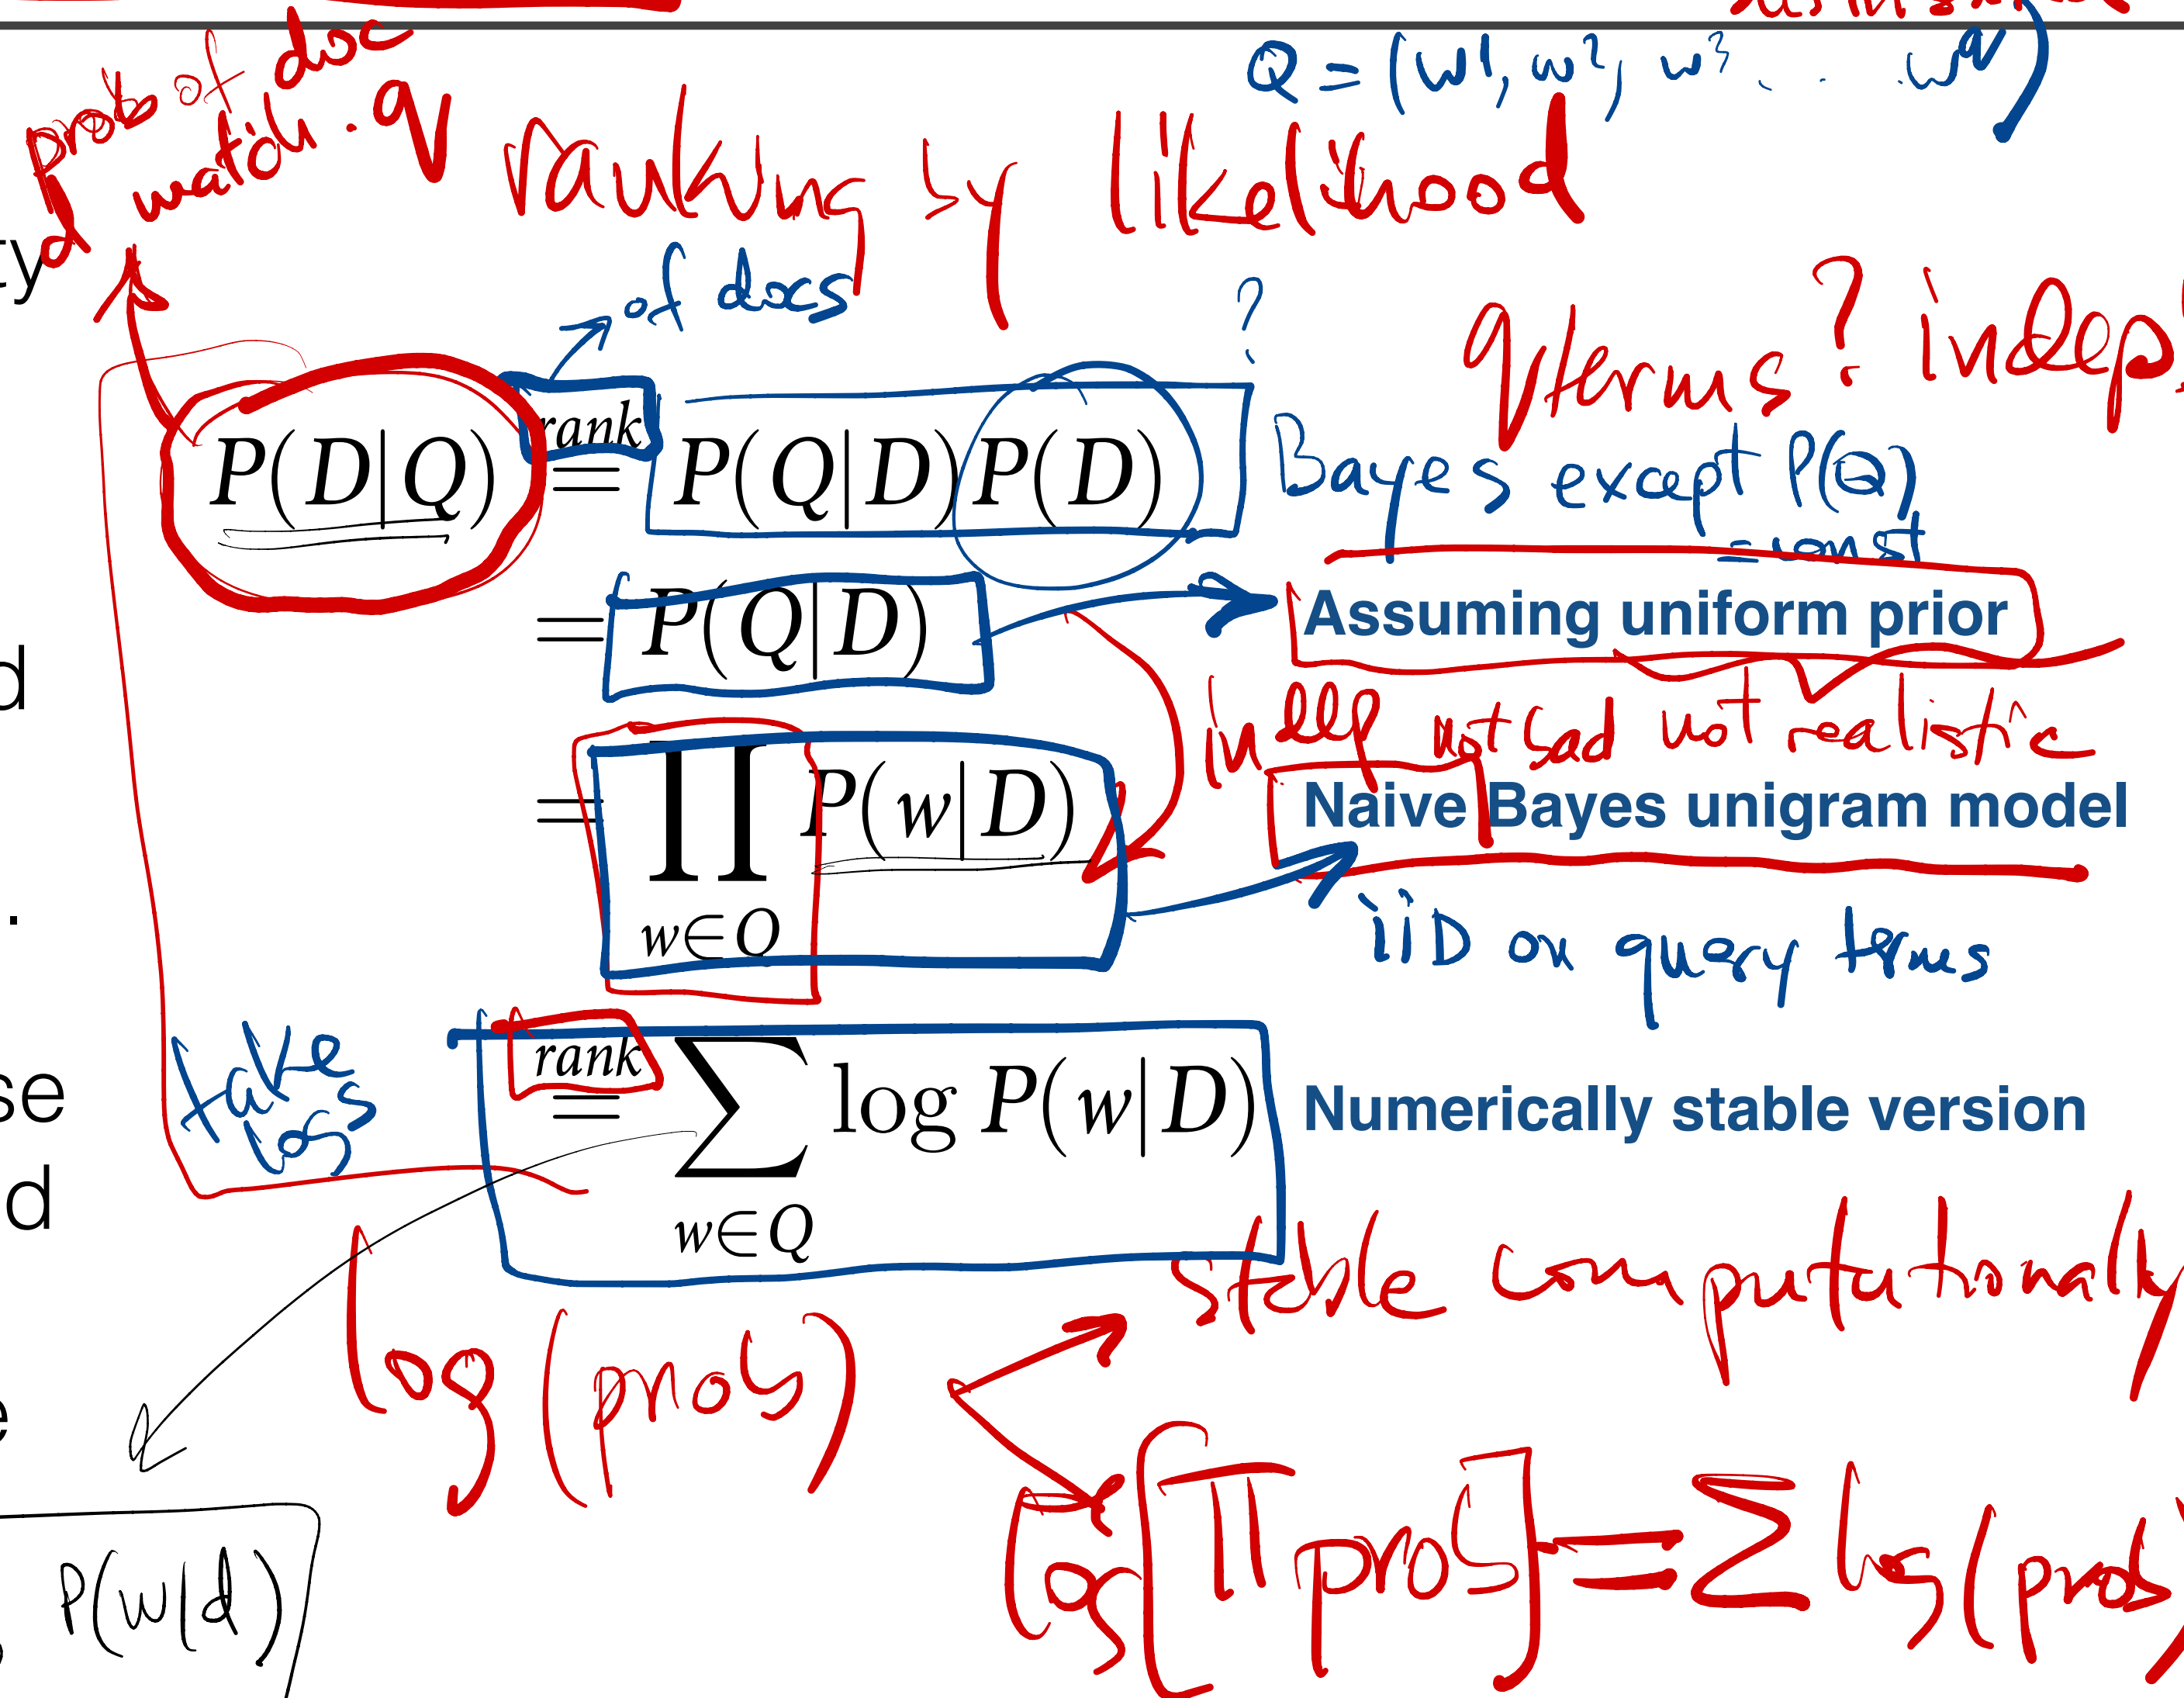 Q = (w1, w2, w3 . . . wq)
prob of doc
match. q
ranking by likelihood
ty
of docs
?
qterms? indep
P(D|Q) rank= P(Q|D)P(D)
Bayes except P(Q)
= const
= P(Q|D)
Assuming uniform prior
d
not bad not realistic
= ∏ P(w|D)
w∈Q
Naive Bayes unigram model
.
iiD on query terms
take
log
rank= ∑ log P(w|D)
w∈Q
Numerically stable version
se
d
stable computationally
log(prob)
e
log[∏ prob] = ∑ log(prob)
P(w|d)